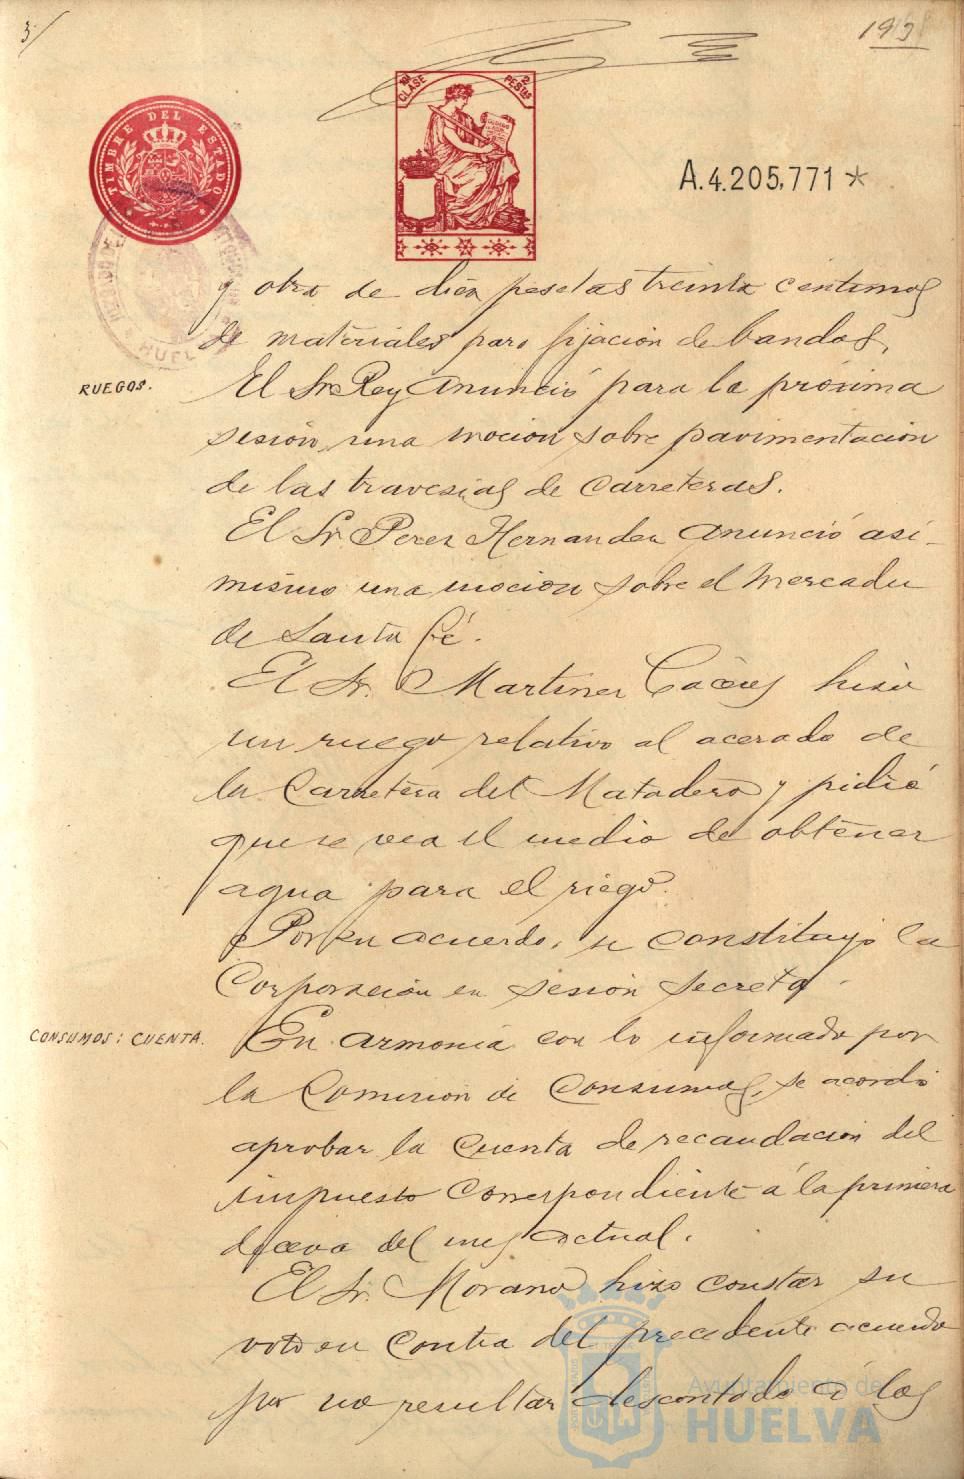 3
193
TIMBRE DEL ESTADO
11ª CLASE
2 PESETAS
A.4.205,771 *
HUEL
y otra de diez pesetas treinta centimos
de materiales para fijación de bandos.
RUEGOS.
El Sr. Rey anunció para la próxima
sesión una mocion sobre pavimentacion
de las travesias de carreteras.
El Sr. Perez Hernandez anunció asi-
mismo una mocion sobre el mercado
de Santa Fé.
El Sr. Martinez Cáceres hizo
un ruego relativo al acerado de
la Carretera del Matadero y pidió
que se vea el medio de obtener
agua para el riego.
Por su acuerdo, se constituyó la
Corporación en sesión secreta.
CONSUMOS: CUENTA.
En armonia con lo informado por
la Comision de Consumos, se acordó
aprobar la cuenta de recaudación del
impuesto correspondiente á la primera
decena del mes actual.
El Sr. Morano hizo constar su
voto en contra del precedente acuerdo
por no resultar descontado á los
Ayuntamiento de
HUELVA